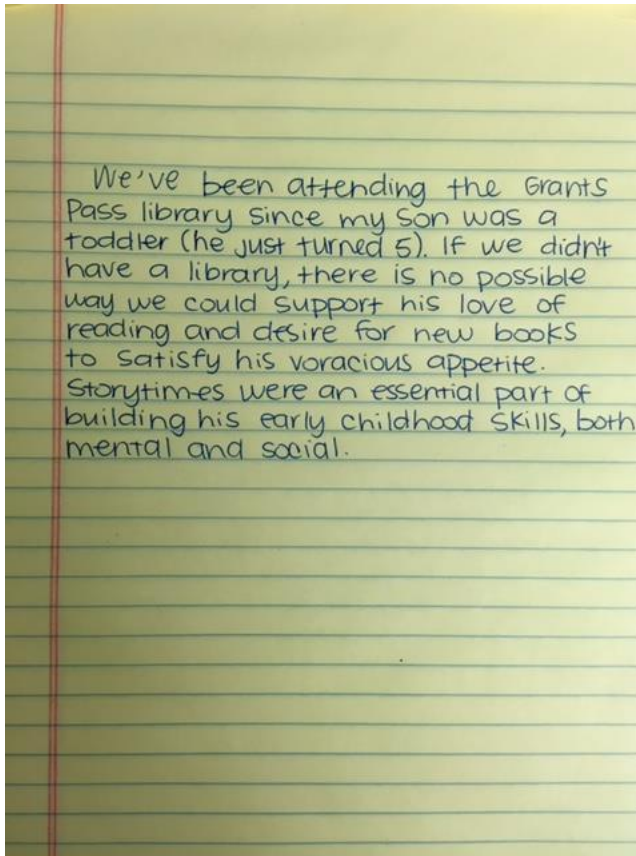 We've been attending the Grants
Pass library since my son was a
toddler (he just turned 5). If we didn't
have a library, there is no possible
way we could support his love of
reading and desire for new books
to satisfy his voracious appetite.
Storytimes were an essential part of
building his early childhood skills, both
mental and social.